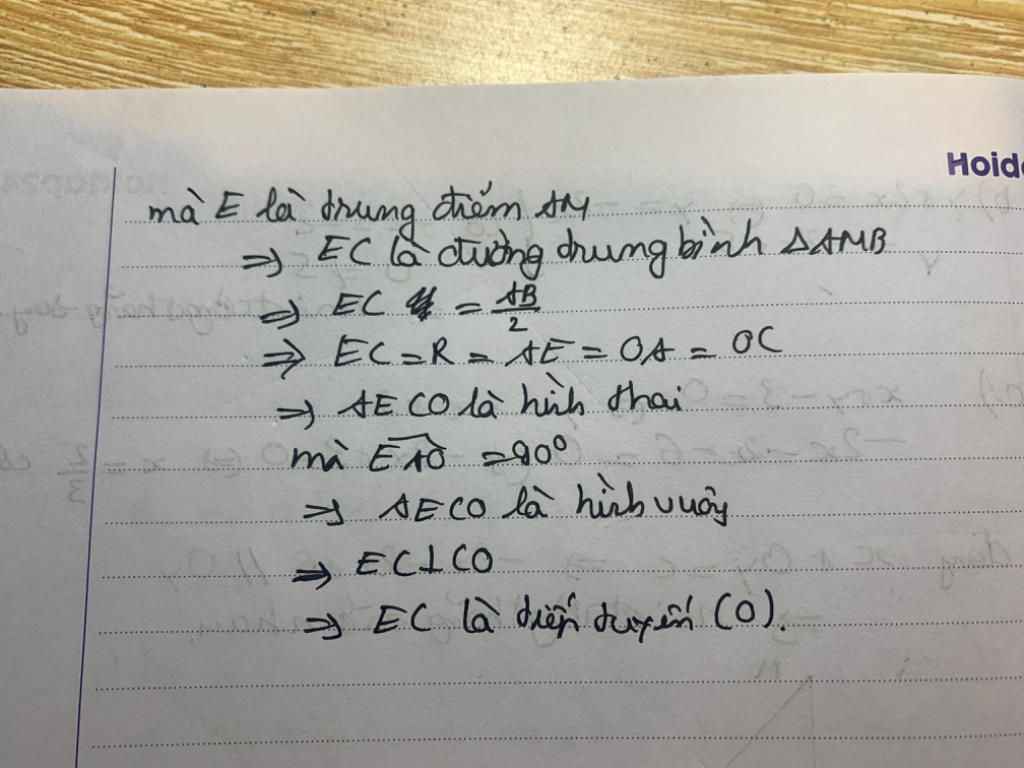 Hoid
mà E là trung điểm AM
=> EC là đường trung bình ΔAMB
=> EC = AB/2
=> EC = R = AE = OA = OC
=> AECO là hình thoi
mà EAO = 90°
=> AECO là hình vuông
=> EC⊥CO
=> EC là tiếp tuyến (O).